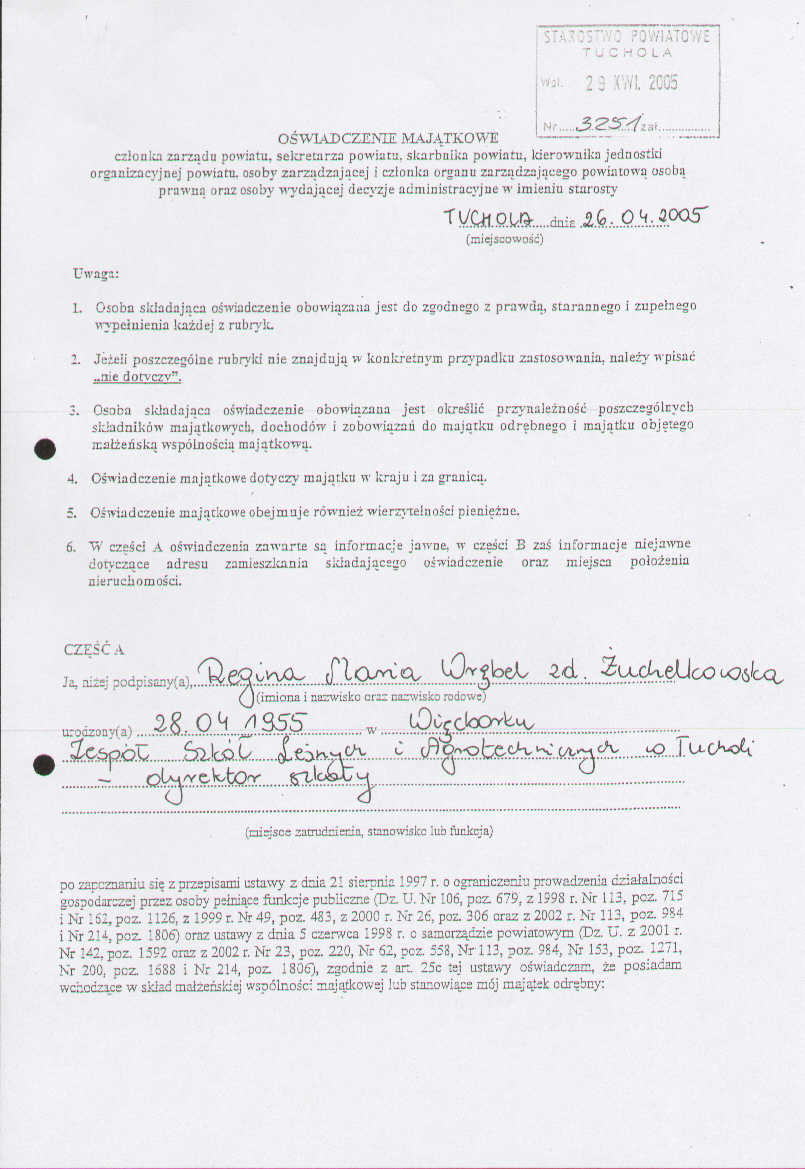 STAROSTWO POWIATOWE
TUCHOLA
Wpł. 29 KWI. 2005
Nr.....3251/zał...............
OŚWIADCZENIE MAJĄTKOWE
członka zarządu powiatu, sekretarza powiatu, skarbnika powiatu, kierownika jednostki
organizacyjnej powiatu, osoby zarządzającej i członka organu zarządzającego powiatową osobą
prawną oraz osoby wydającej decyzje administracyjne w imieniu starosty
TUCHOLA....dnia 26.04.2005
(miejscowość)
Uwaga:
1. Osoba składająca oświadczenie obowiązana jest do zgodnego z prawdą, starannego i zupełnego
wypełnienia każdej z rubryk.
2. Jeżeli poszczególne rubryki nie znajdują w konkretnym przypadku zastosowania, należy wpisać
„nie dotyczy”.
3. Osoba składająca oświadczenie obowiązana jest określić przynależność poszczególnych
składników majątkowych, dochodów i zobowiązań do majątku odrębnego i majątku objętego
małżeńską wspólnością majątkową.
4. Oświadczenie majątkowe dotyczy majątku w kraju i za granicą.
5. Oświadczenie majątkowe obejmuje również wierzytelności pieniężne.
6. W części A oświadczenia zawarte są informacje jawne, w części B zaś informacje niejawne
dotyczące adresu zamieszkania składającego oświadczenie oraz miejsca położenia
nieruchomości.
CZĘŚĆ A
Ja, niżej podpisany(a),..Regina Maria Wrzbel zd. Żuchelkowska
(imiona i nazwisko oraz nazwisko rodowe)
urodzony(a) ...28.04 1955............ w .....Więcborku
Zespół Szkół Leśnych i Agrotechnicznych w Tucholi
– dyrektor szkoły
(miejsce zatrudnienia, stanowisko lub funkcja)
po zapoznaniu się z przepisami ustawy z dnia 21 sierpnia 1997 r. o ograniczeniu prowadzenia działalności
gospodarczej przez osoby pełniące funkcje publiczne (Dz. U. Nr 106, poz. 679, z 1998 r. Nr 113, poz. 715
i Nr 162, poz. 1126, z 1999 r. Nr 49, poz. 483, z 2000 r. Nr 26, poz. 306 oraz z 2002 r. Nr 113, poz. 984
i Nr 214, poz. 1806) oraz ustawy z dnia 5 czerwca 1998 r. o samorządzie powiatowym (Dz. U. z 2001 r.
Nr 142, poz. 1592 oraz z 2002 r. Nr 23, poz. 220, Nr 62, poz. 558, Nr 113, poz. 984, Nr 153, poz. 1271,
Nr 200, poz. 1688 i Nr 214, poz. 1806), zgodnie z art. 25c tej ustawy oświadczam, że posiadam
wchodzące w skład małżeńskiej wspólności majątkowej lub stanowiące mój majątek odrębny: